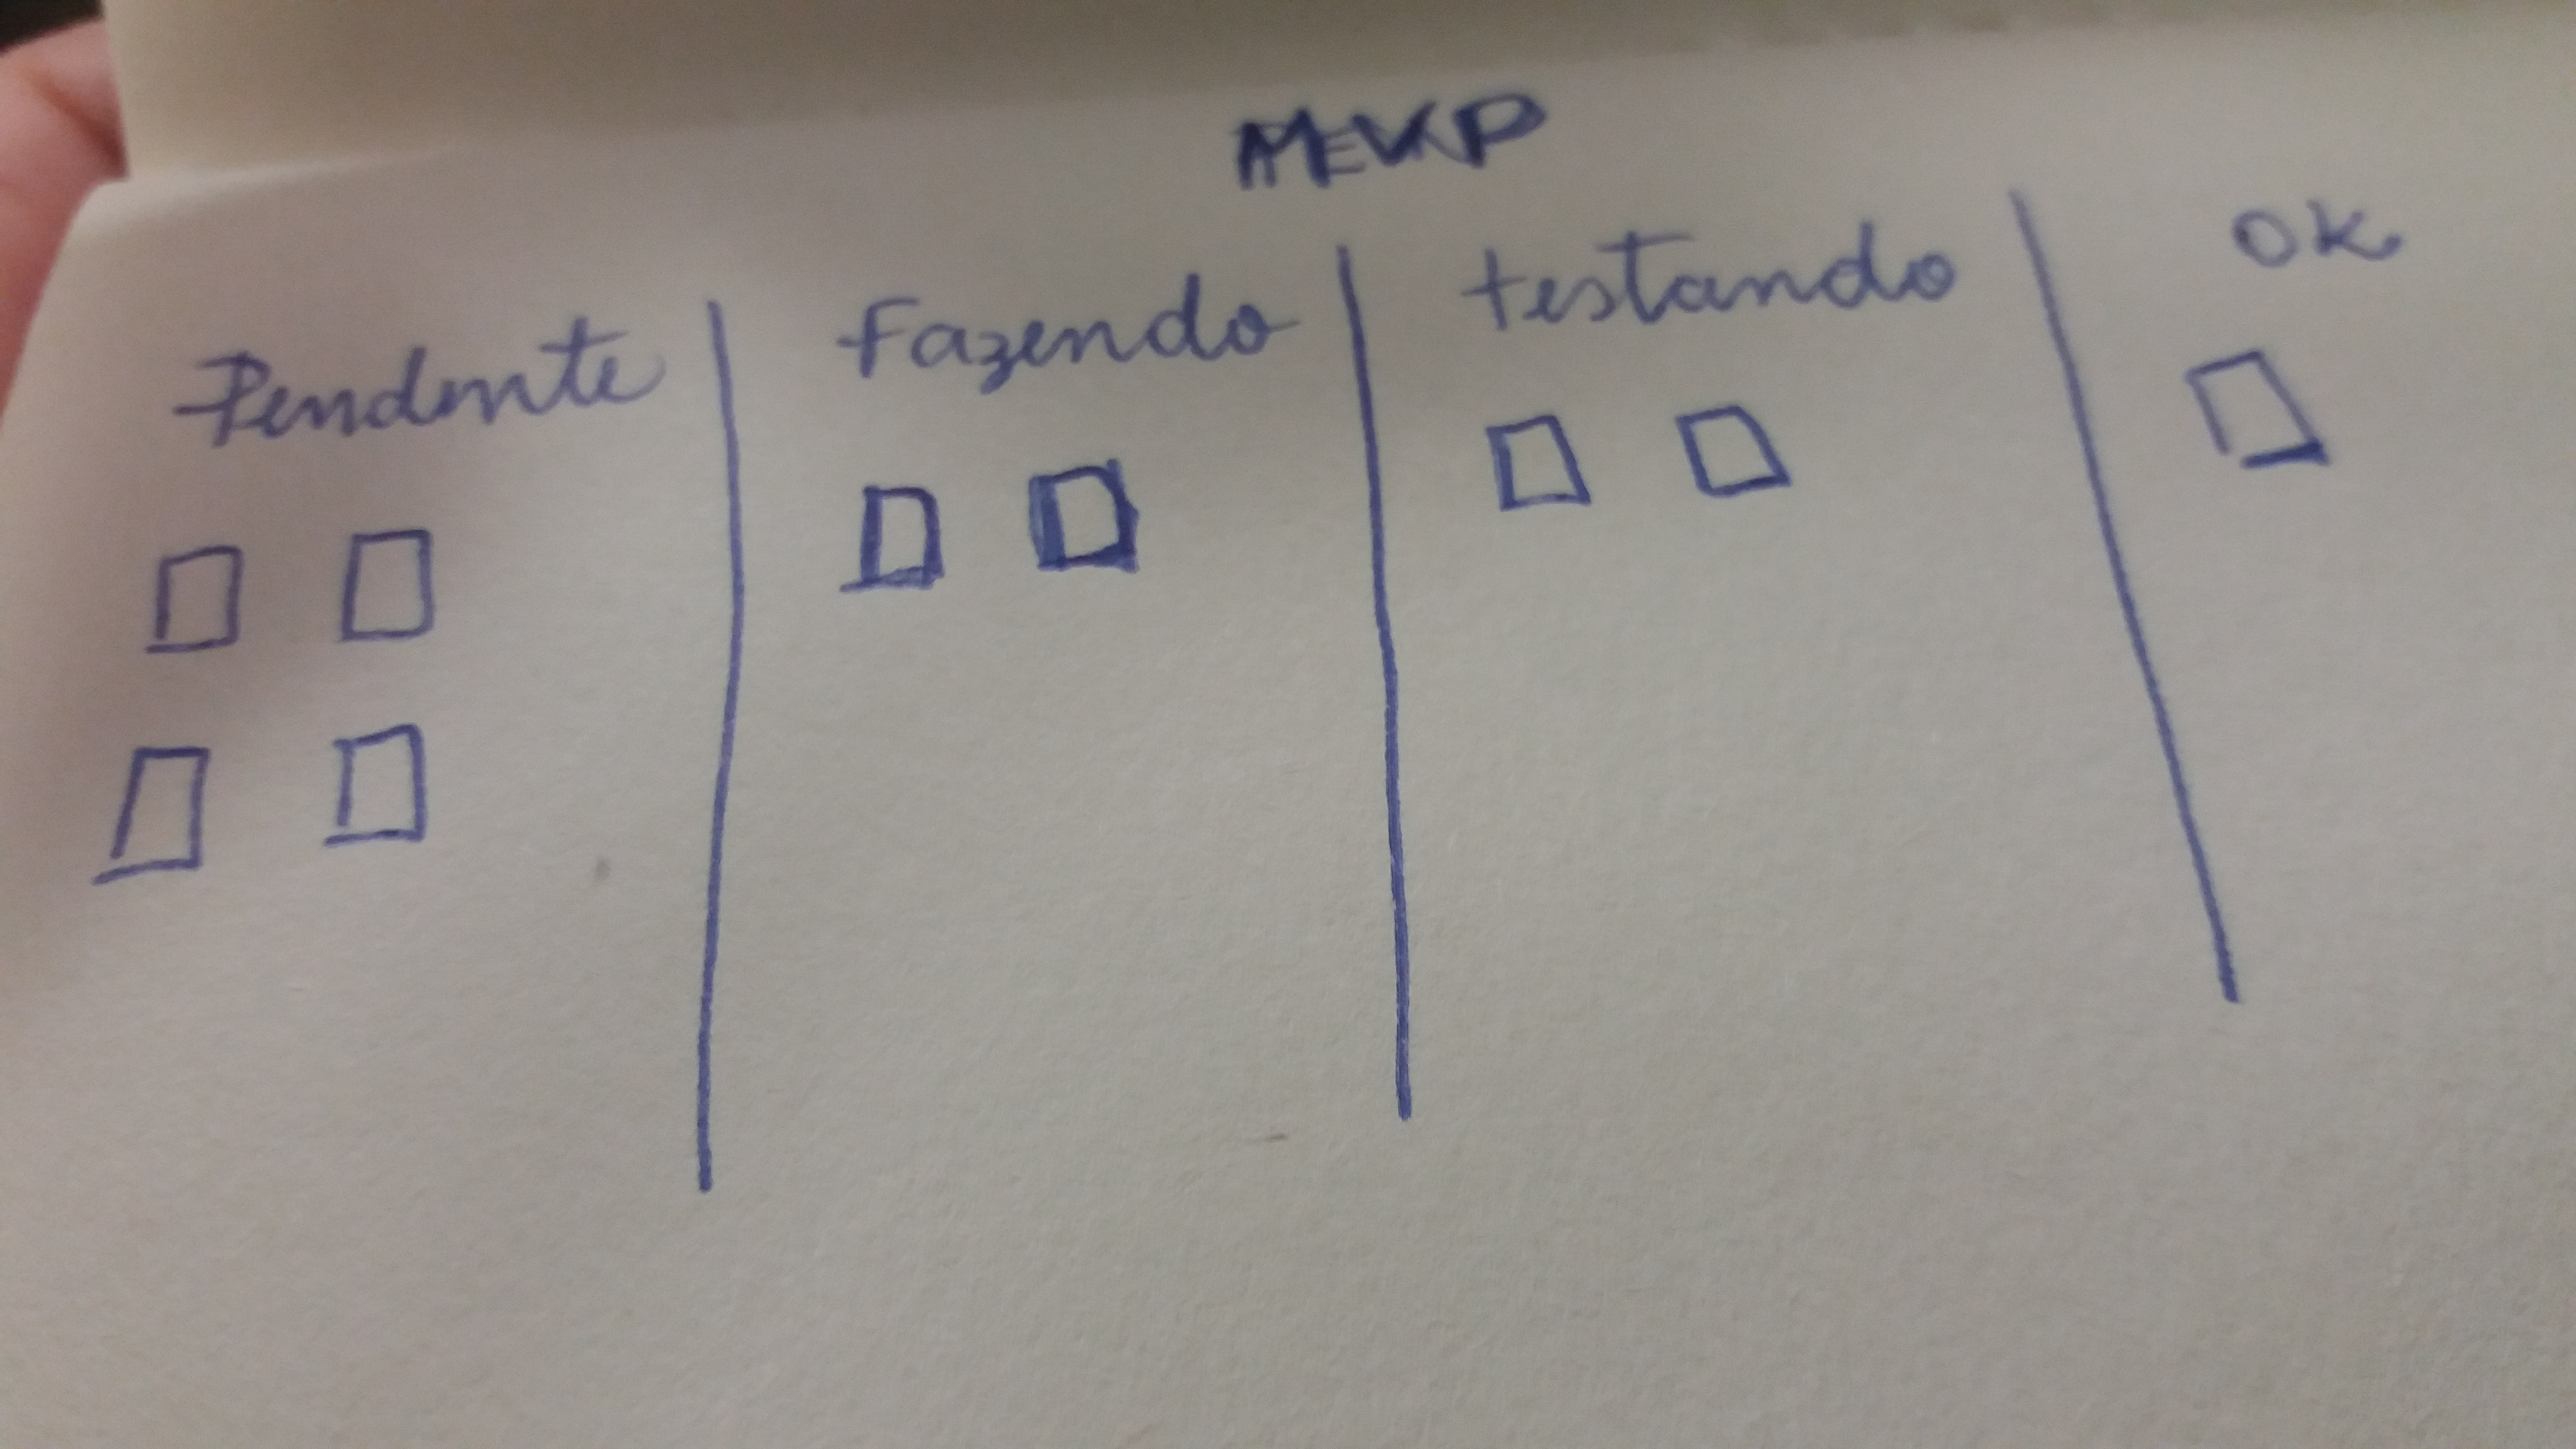 Pendente Fazendo testando ok